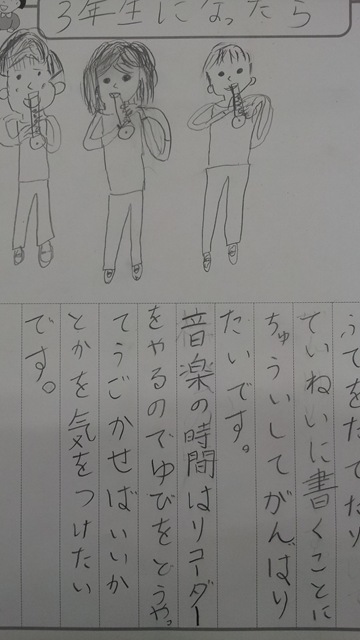 3年生になったら
ふでをたてたり
ていねいに書くことに
ちゅういしてがんばり
たいです。
音楽の時間はリコーダー
をやるのでゆびをどうや
てうごかせばいいか
とかを気をつけたい
です。